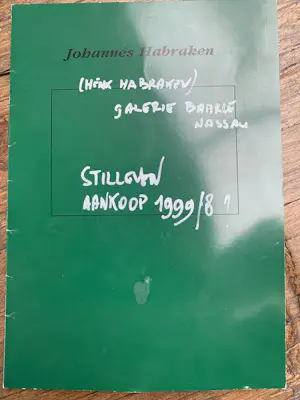 Johannes Habraken
(HENK HABRAKEN)
GALERIE BAARLE
NASSAU
STILLEVEN
AANKOOP 1999/8